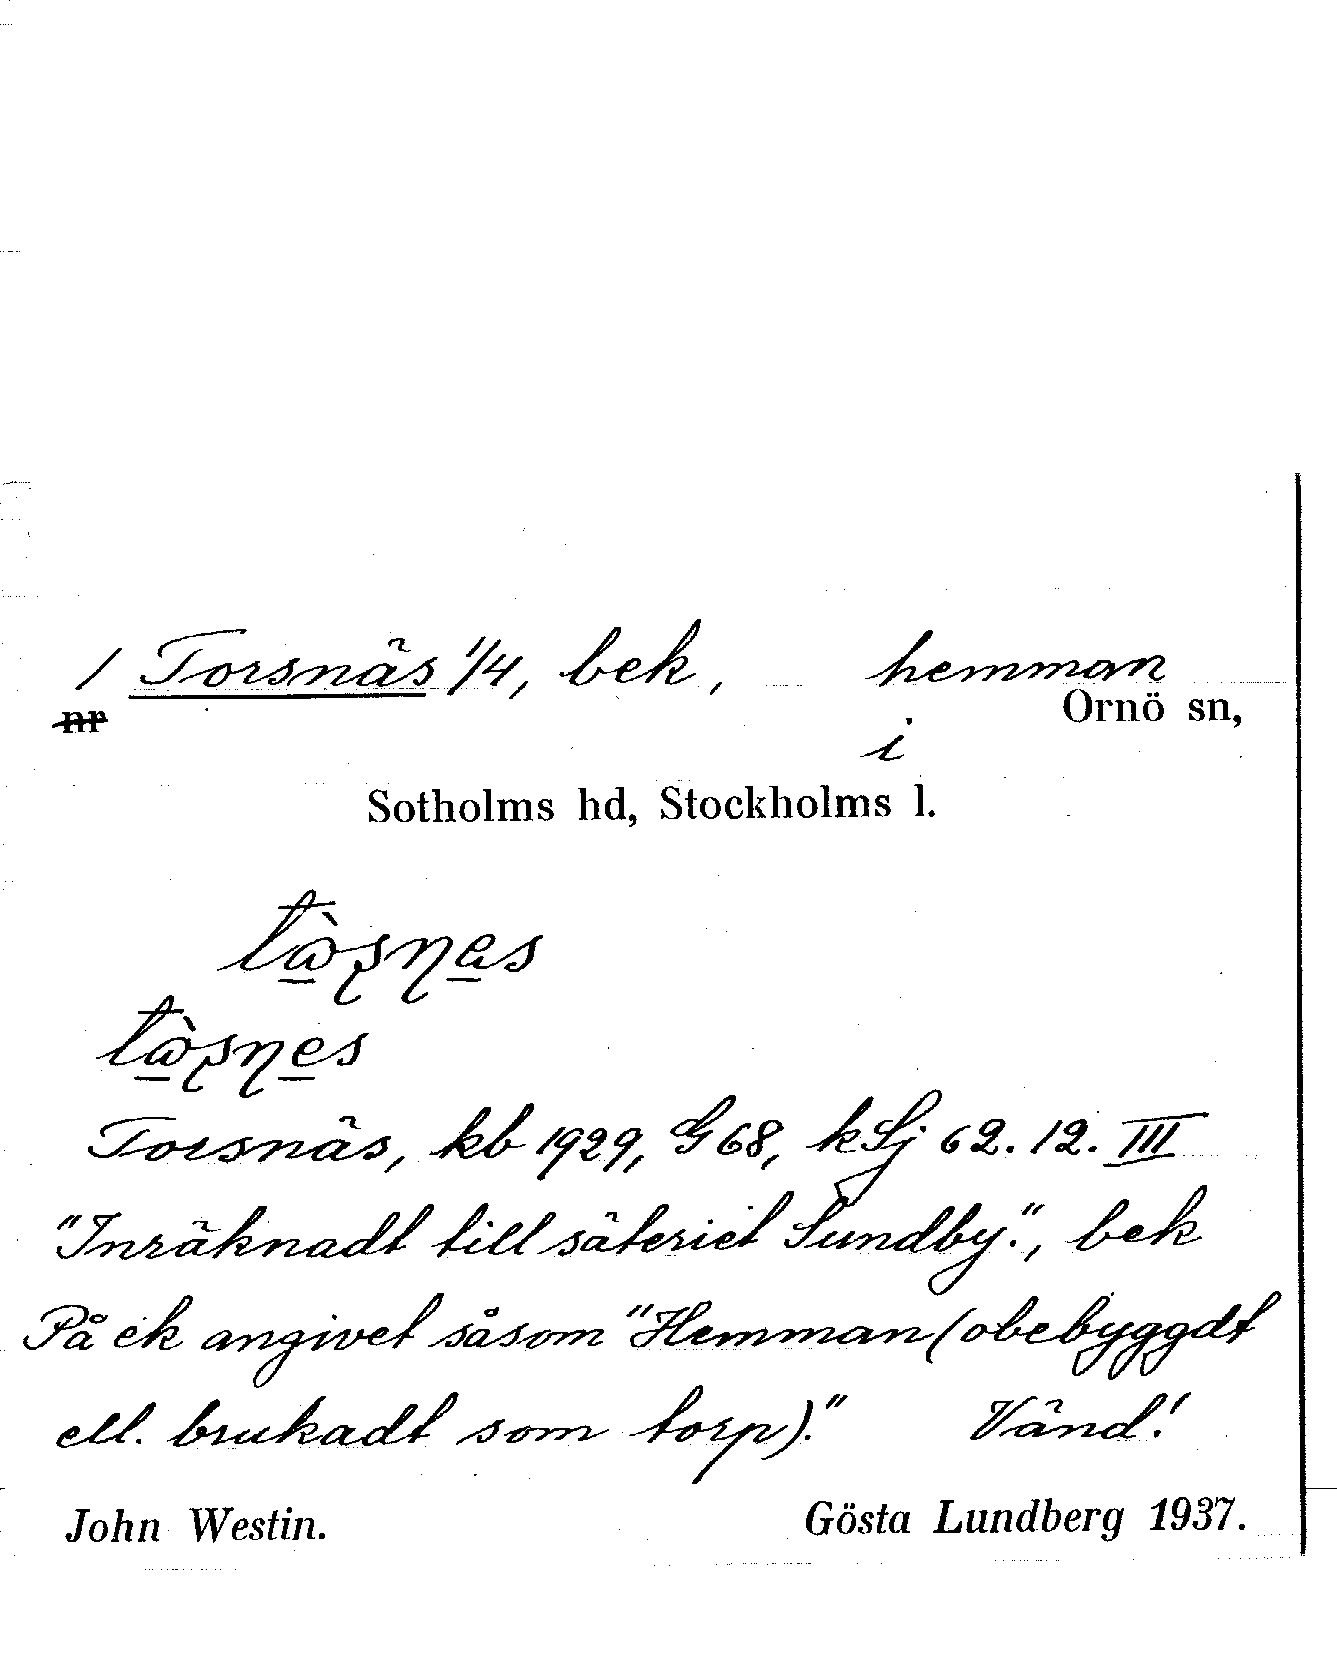 1 Torsnäs 1/4, bek, hemman
nr
i Ornö sn,
Sotholms hd, Stockholms l.
Torsnäs, kb 1929, G 68, k Lj 62. 12. III
"Inräknadt till säteriet Sundby.", bek
På ek angivet såsom "Hemman (obebyggdt
ell. brukadt som torp)." Vänd!
John Westin. Gösta Lundberg 1937.